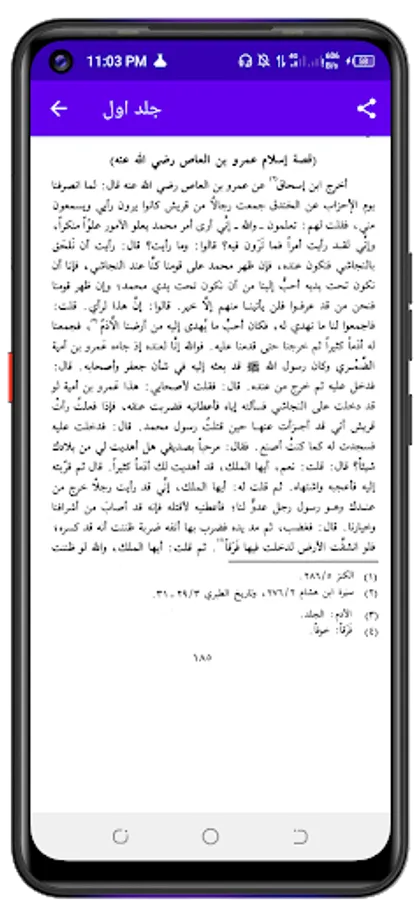 11:03 PM
4G
606
B/s
58
جلد اول
(قصة إسلام عمرو بن العاص رضي الله عنه)
أخرج ابن إسحاق(٢) عن عمرو بن العاص رضي الله عنه قال: لما انصرفنا
يوم الأحزاب عن الخندق جمعت رجالاً من قريش كانوا يرون رأيي ويسمعون
مني، فقلت لهم: تعلمون ـ والله ـ إنِّي أرى أمر محمد يعلو الأمور علوّاً منكراً،
وإنِّي لقد رأيت أمراً فما تَرَون فيه؟ قالوا: وما رأيت؟ قال: رأيت أن نَلحق
بالنجاشي فنكون عنده، فإن ظهر محمد على قومنا كنَّا عند النجاشي، فإنا أن
نكون تحت يديه أحبُّ إلينا من أن نكون تحت يدي محمد؛ وإن ظهر قومنا
فنحن من قد عرفوا فلن يأتينا منهم إلَّا خير. قالوا: إنَّ هذا لرأي. قلت:
فاجمعوا لنا ما نهدي له، فكان أحبُّ ما يُهدى إليه من أرضنا الأَدَمُ(٣)، فجمعنا
له أدَماً كثيراً ثم خرجنا حتى قدمنا عليه. فوالله إنَّا لعنده إذ جاءه عَمرو بن أمية
الضَّمْري وكان رسول الله ﷺ قد بعثه إليه في شأن جعفر وأصحابه. قال:
فدخل عليه ثم خرج من عنده. قال: فقلت لأصحابي: هذا عَمرو بن أمية لو
قد دخلت على النجاشي فسألته إياه فأعطانيه فضربت عنقه، فإذا فعلتُ رأتْ
قريش أني قد أجزأت عنها حين قتلتُ رسول محمد. قال: فدخلت عليه
فسجدت له كما كنتُ أصنع. فقال: مرحباً بصديقي هل أهديت لي من بلادك
شيئاً؟ قال: قلت: نعم، أيها الملك، قد أهديت لك أدَماً كثيراً. قال ثم قرّبته
إليه فأعجبه واشتهاه. قال: ثم قلت له: أيها الملك، إنِّي قد رأيت رجلاً خرج من
عندك وهو رسول رجل عدوٍّ لنا؛ فأعطنيه لأقتله فإنه قد أصابَ من أشرافنا
وخيارنا. قال: فغضب، ثم مد يده فضرب بها أنفه ضربة ظننت أنه قد كسره؛
فلو انشقَّت الأرض لدخلت فيها فَرَقاً(٤). ثم قلت: أيها الملك، والله لو ظننت
(١) الكنز ٢٨٦/٥.
(٢) سيرة ابن هشام ٢٧٦/٢، وتاريخ الطبري ٢٩/٣ ـ ٣١.
(٣) الأدم: الجلد.
(٤) فَرَقاً: خوفاً.
١٨٥